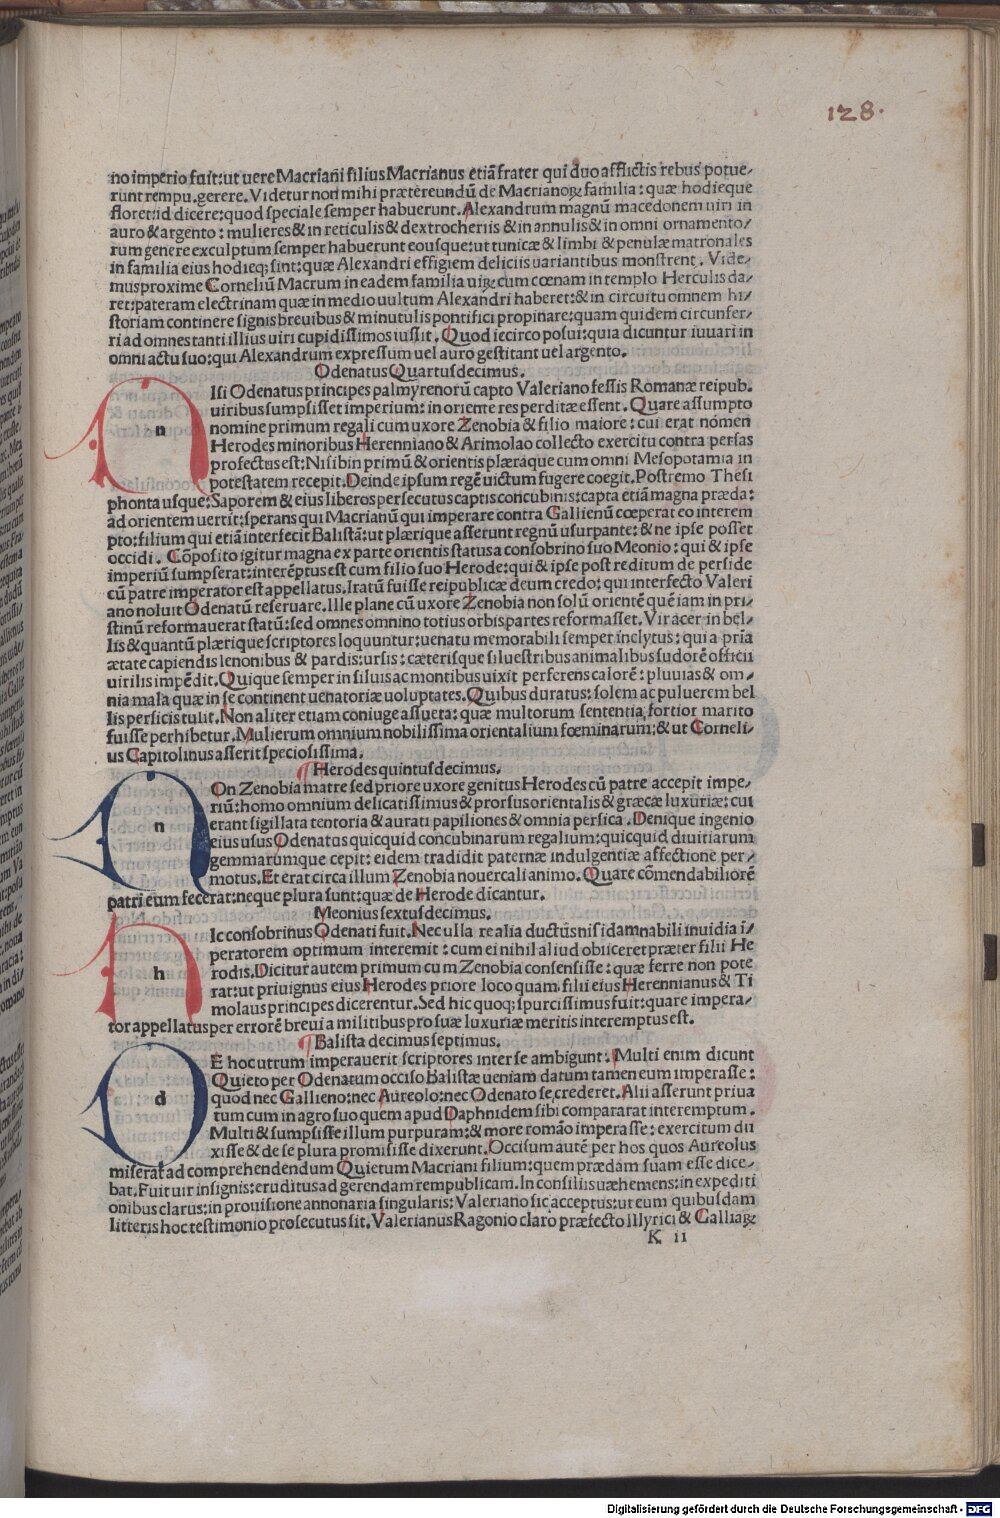 128.
no imperio fuit: ut uere Macriani filius Macrianus etiā frater qui duo afflictis rebus potue/
runt rempu. gerere. Videtur non mihi prætereundū de Macrianoꝝ familia: quæ hodieque
floret: id dicere: quod speciale semper habuerunt. Alexandrum magnū macedonem uiri in
auro & argento: mulieres & in reticulis & dextrocheriis & in annulis & in omni ornamento/
rum genere exculptum semper habuerunt eousque: ut tunicæ & limbi & penulæ matronales
in familia eius hodieq; sint: quæ Alexandri effigiem deliciis uariantibus monstrent. Vide/
mus proxime Corneliū Macrum in eadem familia uiꝝ cum cœnam in templo Herculis da/
ret: pateram electrinam quæ in medio uultum Alexandri haberet: & in circuitu omnem hi/
storiam continere signis breuibus & minutulis pontifici propinare: quam quidem circunfer/
ri ad omnes tanti illius uiri cupidissimos iussit. Quod iccirco posui: quia dicuntur iuuari in
omni actu suo: qui Alexandrum expressum uel auro gestitant uel argento.
Odenatus Quartusdecimus.
n Isi Odenatus principes palmyrenorū capto Valeriano fessis Romanæ reipub.
uiribus sumpsisset imperium: in oriente res perditæ essent. Quare assumpto
nomine primum regali cum uxore Zenobia & filio maiore: cui erat nomen
Herodes minoribus Herenniano & Arimolao collecto exercitu contra persas
profectus est: Nisibin primū & orientis plæraque cum omni Mesopotamia in
potestatem recepit. Deinde ipsum regē uictum fugere coegit. Postremo Thesi
phonta usque: Saporem & eius liberos persecutus captis concubinis: capta etiā magna præda:
ad orientem uertit: sperans qui Macrianū qui imperare contra Gallienū cœperat eo interem
pto: filium qui etiā interfecit Balistā: ut plærique asserunt regnū usurpante: & ne ipse posset
occidi. Cōposito igitur magna ex parte orientis statu s a consobrino suo Meonio: qui & ipse
imperiū sumpserat: interēptus est cum filio suo Herode: qui & ipse post reditum de perside
cū patre imperator est appellatus. Iratū fuisse reipublicæ deum credo: qui interfecto Valeri
ano noluit Odenatū reseruare. Ille plane cū uxore Zenobia non solū orientē quē iam in pri/
stinū reformauerat statū: sed omnes omnino totius orbis partes reformasset. Vir acer in bel/
lis & quantū plærique scriptores loquuntur: uenatu memorabili semper inclytus: qui a prīa
ætate capiendis lenonibus & pardis: ursis: cæterisque siluestribus animalibus sudorē officii
uirilis impēdit. Quique semper in siluis ac montibus uixit perferens calorē: pluuias & om/
nia mala quæ in se continent uenatoriæ uoluptates. Quibus duratus: solem ac puluerem bel
lis persicis tulit. Non aliter etiam coniuge assueta: quæ multorum sententia fortior marito
fuisse perhibetur. Mulierum omnium nobilissima orientalium fœminarum: & ut Corneli/
us Capitolinus asserit speciosissima.
¶ Herodes quintusdecimus.
n On Zenobia matre sed priore uxore genitus Herodes cū patre accepit impe/
riū: homo omnium delicatissimus & prorsus orientalis & græcæ luxuriæ: cui
erant sigillata tentoria & aurati papiliones & omnia persica. Denique ingenio
eius usus Odenatus quicquid concubinarum regalium: quicquid diuitiarum
gemmarumque cepit: eidem tradidit paternæ indulgentiæ affectione per/
motus. Et erat circa illum Zenobia nouercali animo. Quare cōmendabiliorē
patri eum fecerat: neque plura sunt: quæ de Herode dicantur.
Meonius sextusdecimus.
h Ic consobrinus Odenati fuit. Nec ulla re alia ductus nisi damnabili inuidia ī/
peratorem optimum interemit: cum ei nihil aliud obiiceret præter filii He
rodis. Dicitur autem primum cum Zenobia consensisse: quæ ferre non pote
rat: ut priuignus eius Herodes priore loco quam filii eius Herennianus & Ti
molaus principes dicerentur. Sed hic quoq; spurcissimus fuit: quare impera/
tor appellatus per errorē breui a militibus pro suæ luxuriæ meritis interemptus est.
¶ Balista decimusseptimus.
d E hoc utrum imperauerit scriptores inter se ambigunt. Multi enim dicunt
Quieto per Odenatum occiso Balistæ ueniam datum tamen eum imperasse:
quod nec Gallieno: nec Aureolo: nec Odenato se crederet. Alii asserunt priua
tum cum in agro suo quem apud Daphnidem sibi compararat interemptum.
Multi & sumpsisse illum purpuram: & more romāo imperasse: exercitum du
xisse & de se plura promisisse dixerunt. Occisum autē per hos quos Aureolus
miserat ad comprehendendum Quietum Macriani filium: quem prædam suam esse dice/
bat. Fuit uir insignis: eruditus ad gerendam rempublicam. In consiliis uæhemens: in expediti
onibus clarus: in prouisione annonaria singularis: Valeriano sic acceptus: ut eum quibusdam
litteris hoc testimonio prosecutus sit. Valerianus Ragonio claro præfecto Illyrici & Galliaꝝ
K ii
Digitalisierung gefördert durch die Deutsche Forschungsgemeinschaft - DFG